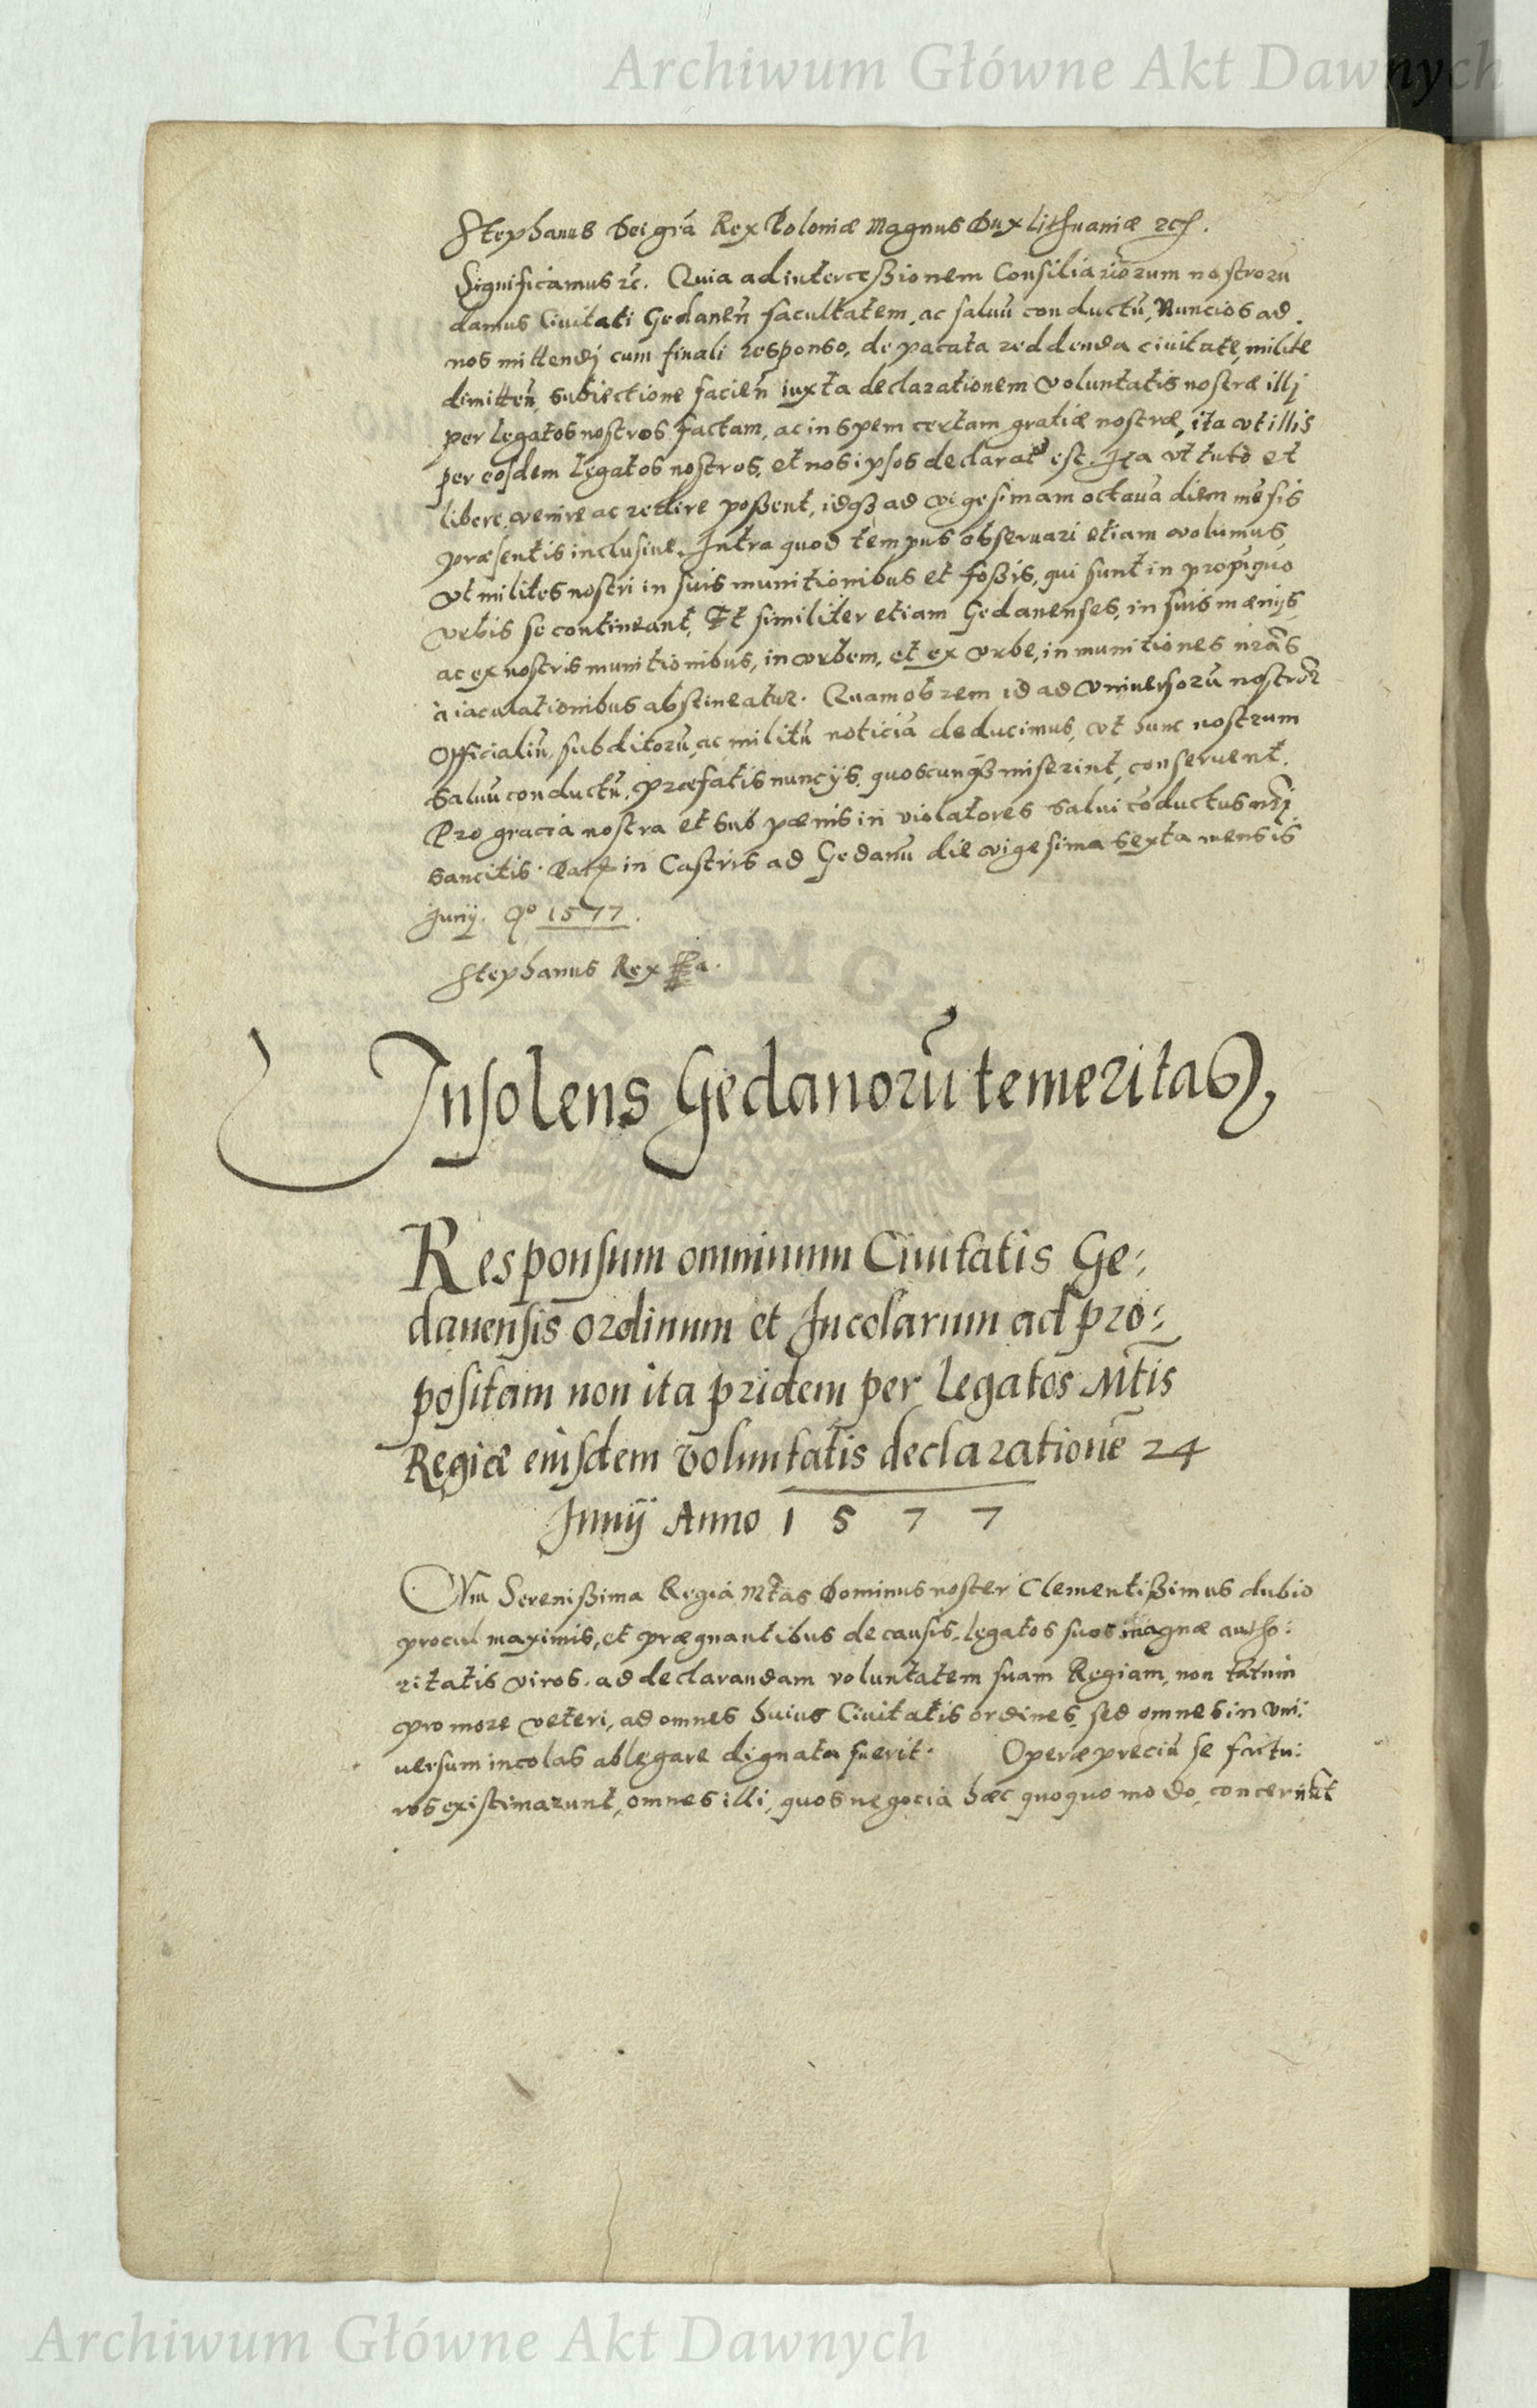 Archiwum Główne Akt Dawnych
Stephanus Dei gra Rex Poloniæ Magnus Dux Lithuaniæ
Significamus Quia ad interceßionem Consiliariorum nostrorū
damus Ciuitati Gedaneñ facultatem, ac saluū conductū, Nuncios ad
nos mittendj cum finali responso, de pacata reddenda ciuitate, milite
dimitteñ, subiectione facieñ iuxta declarationem voluntatis nostræ illj
per Legatos nostros factam, ac in spem certam gratiæ nostræ, ita vt illis
per eosdem Legatos nostros, et nos ipsos declaratū est. Ita vt tutò et
liberè venire ac redire poßent, idqз ad vigesimam octauā diem mēsis
præsentis inclusiue. Intra quod tempus obseruari etiam volumus,
vt milites nostri in suis munitionibus et foßis, qui sunt in propīquo
vrbis se contineant, Et similiter etiam Gedanenses, in suis mænijs,
ac ex nostris munitionibus, in vrbem, et ex vrbe, in munitiones nrãs
à iaculationibus abstineatur. Quamobrem id ad vniuersorū nostror
Officialiū, subditorū, ac militū noticiā deducimus, vt hunc nostrum
saluū conductū, præfatis nuncijs, quoscunqз miserint, conseruent.
Pro gracia nostra et sub pænis in violatores salui cōductus nrj
sancitis. Dat in Castris ad Gedanū die vigesima sexta mensis
Junij. Ao 1577.
Stephanus Rex
Insolens Gedanorū temeritas,
Responsum omnium Ciuitatis Ge:
danensis ordinum et Incolarum ad pro:
positam non ita pridem per Legatos Mtis
Regiæ eiusdem voluntatis declarationē 24
Junij Anno 1 5 7 7
Cum Serenißima Regia Mtas Dominus noster Clementißimus dubio
procul maximis, et prægnantibus de causis, legatos suos magnæ autho:
ritatis viros, ad declarandam voluntatem suam Regiam, non tātum
pro more veteri, ad omnes huius Ciuitatis ordines, sed omnes in vni:
uersum incolas ablegare dignata fuerit. Operæpreciū se factu:
ros existimarunt, omnes illi, quos negocia hæc quoquo modo, concernūt
Archiwum Główne Akt Dawnych